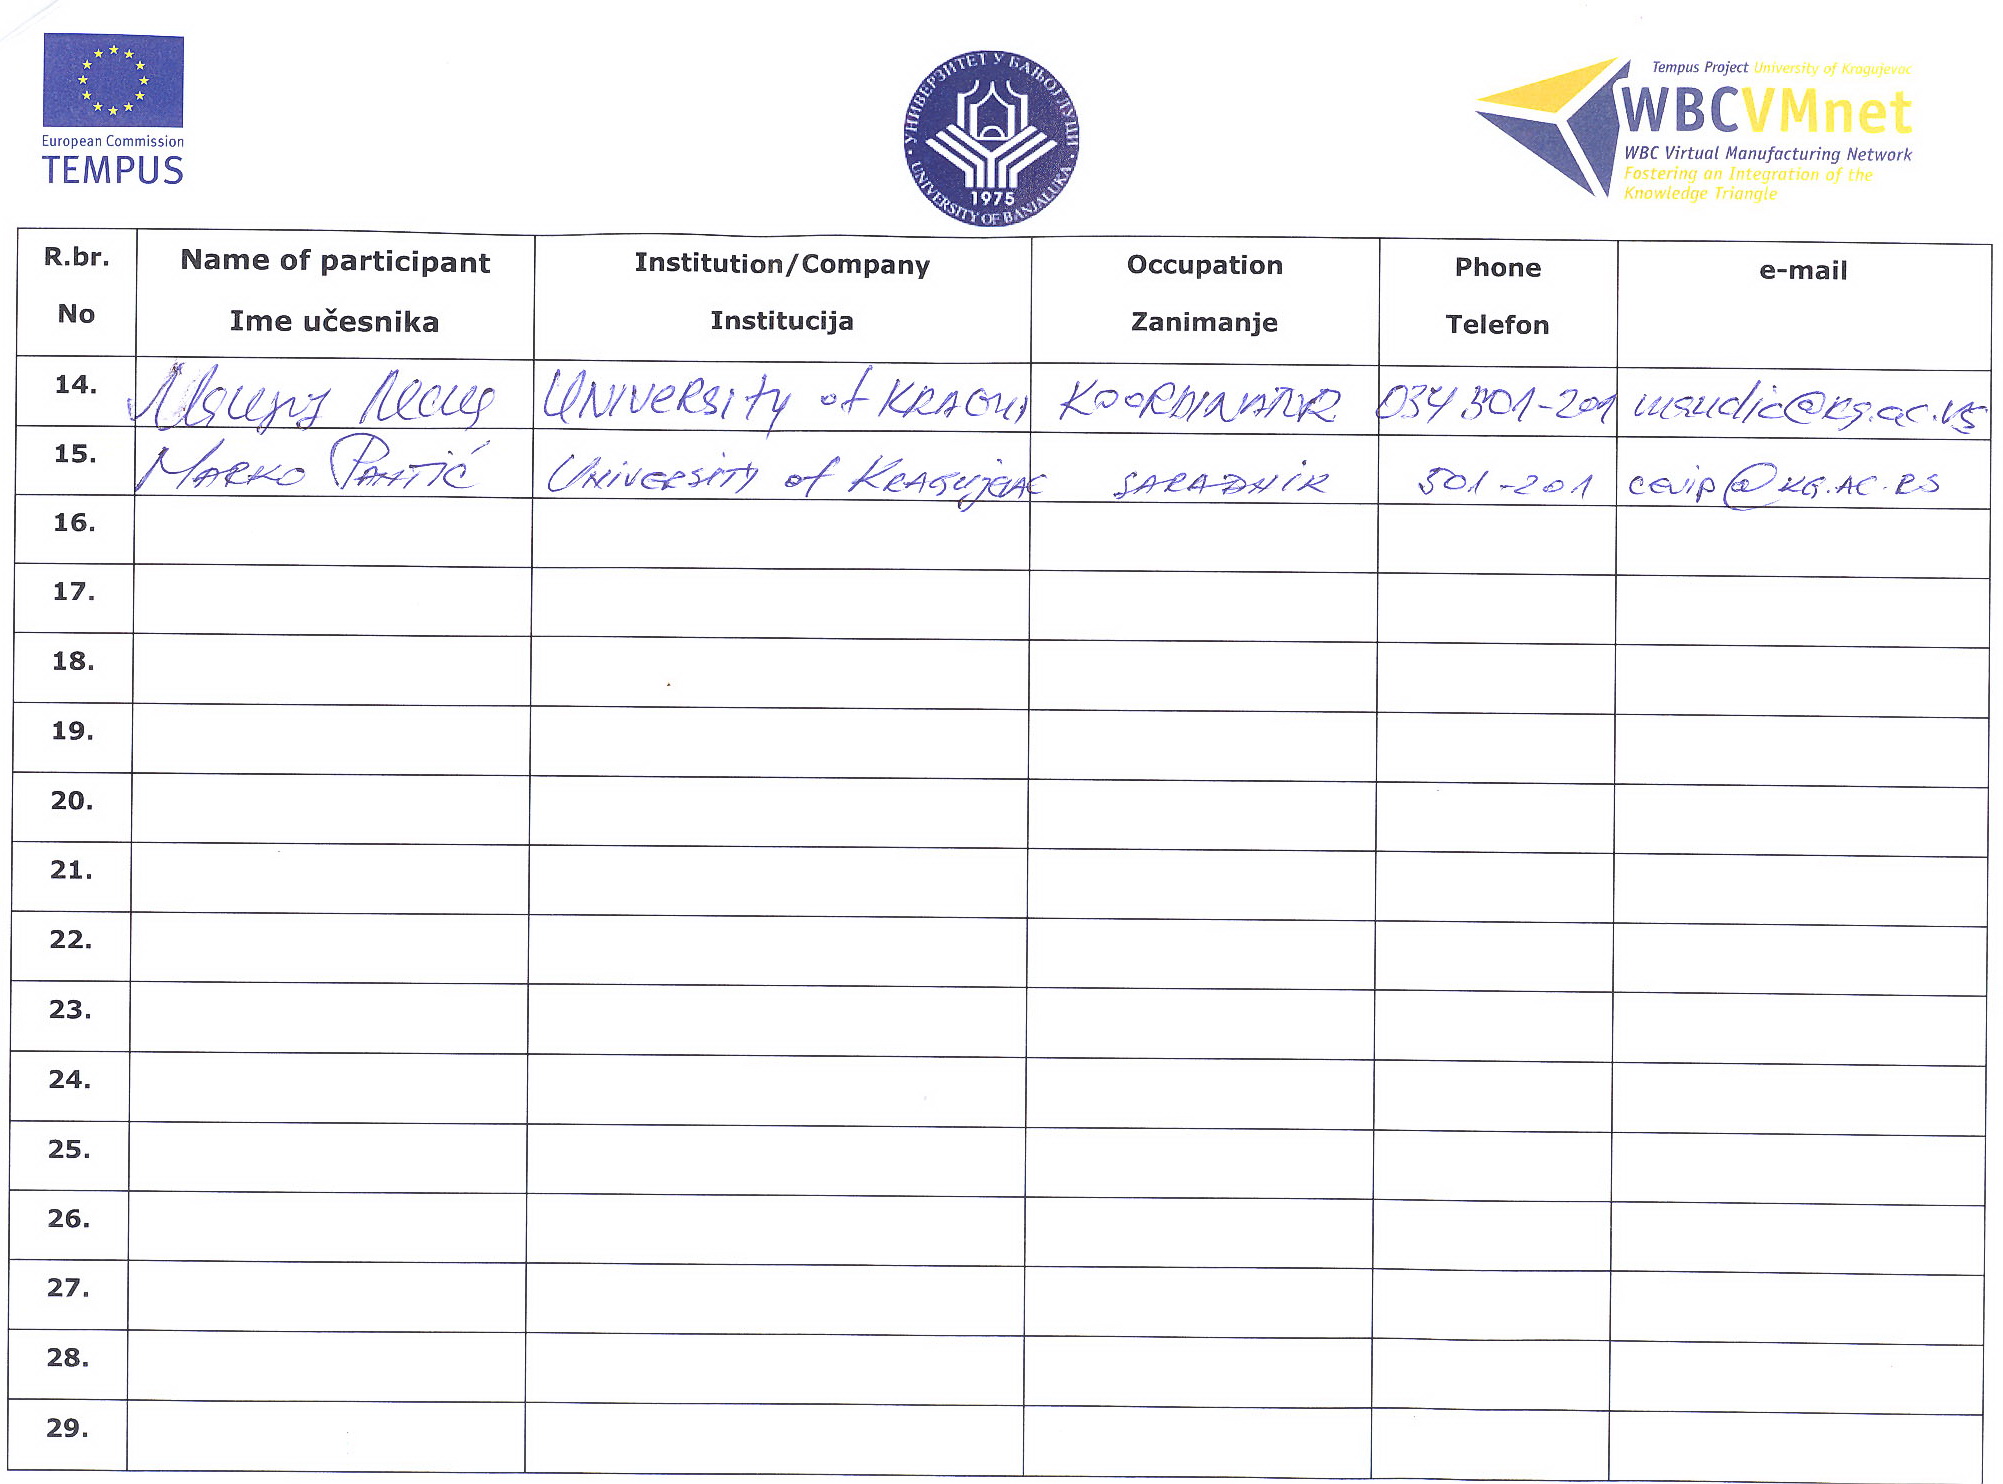 European Commission
TEMPUS
УНИВЕРЗИТЕТ У БАЊОЈ ЛУЦИ
1975
UNIVERSITY OF BANJALUKA
Tempus Project University of Kragujevac
WBCVMnet
WBC Virtual Manufacturing Network
Fostering an Integration of the
Knowledge Triangle
R.br. Name of participant Institution/Company Occupation Phone e-mail
No Ime učesnika Institucija Zanimanje Telefon
14. UNIVERSITY of KRAGUJ KOORDINATOR 034 301-201
15. MARKO PANTIĆ UNIVERSITY of KRAGUJEVAC SARADNIK 301-201 cevip@KG.AC.RS
16.
17.
18.
19.
20.
21.
22.
23.
24.
25.
26.
27.
28.
29.